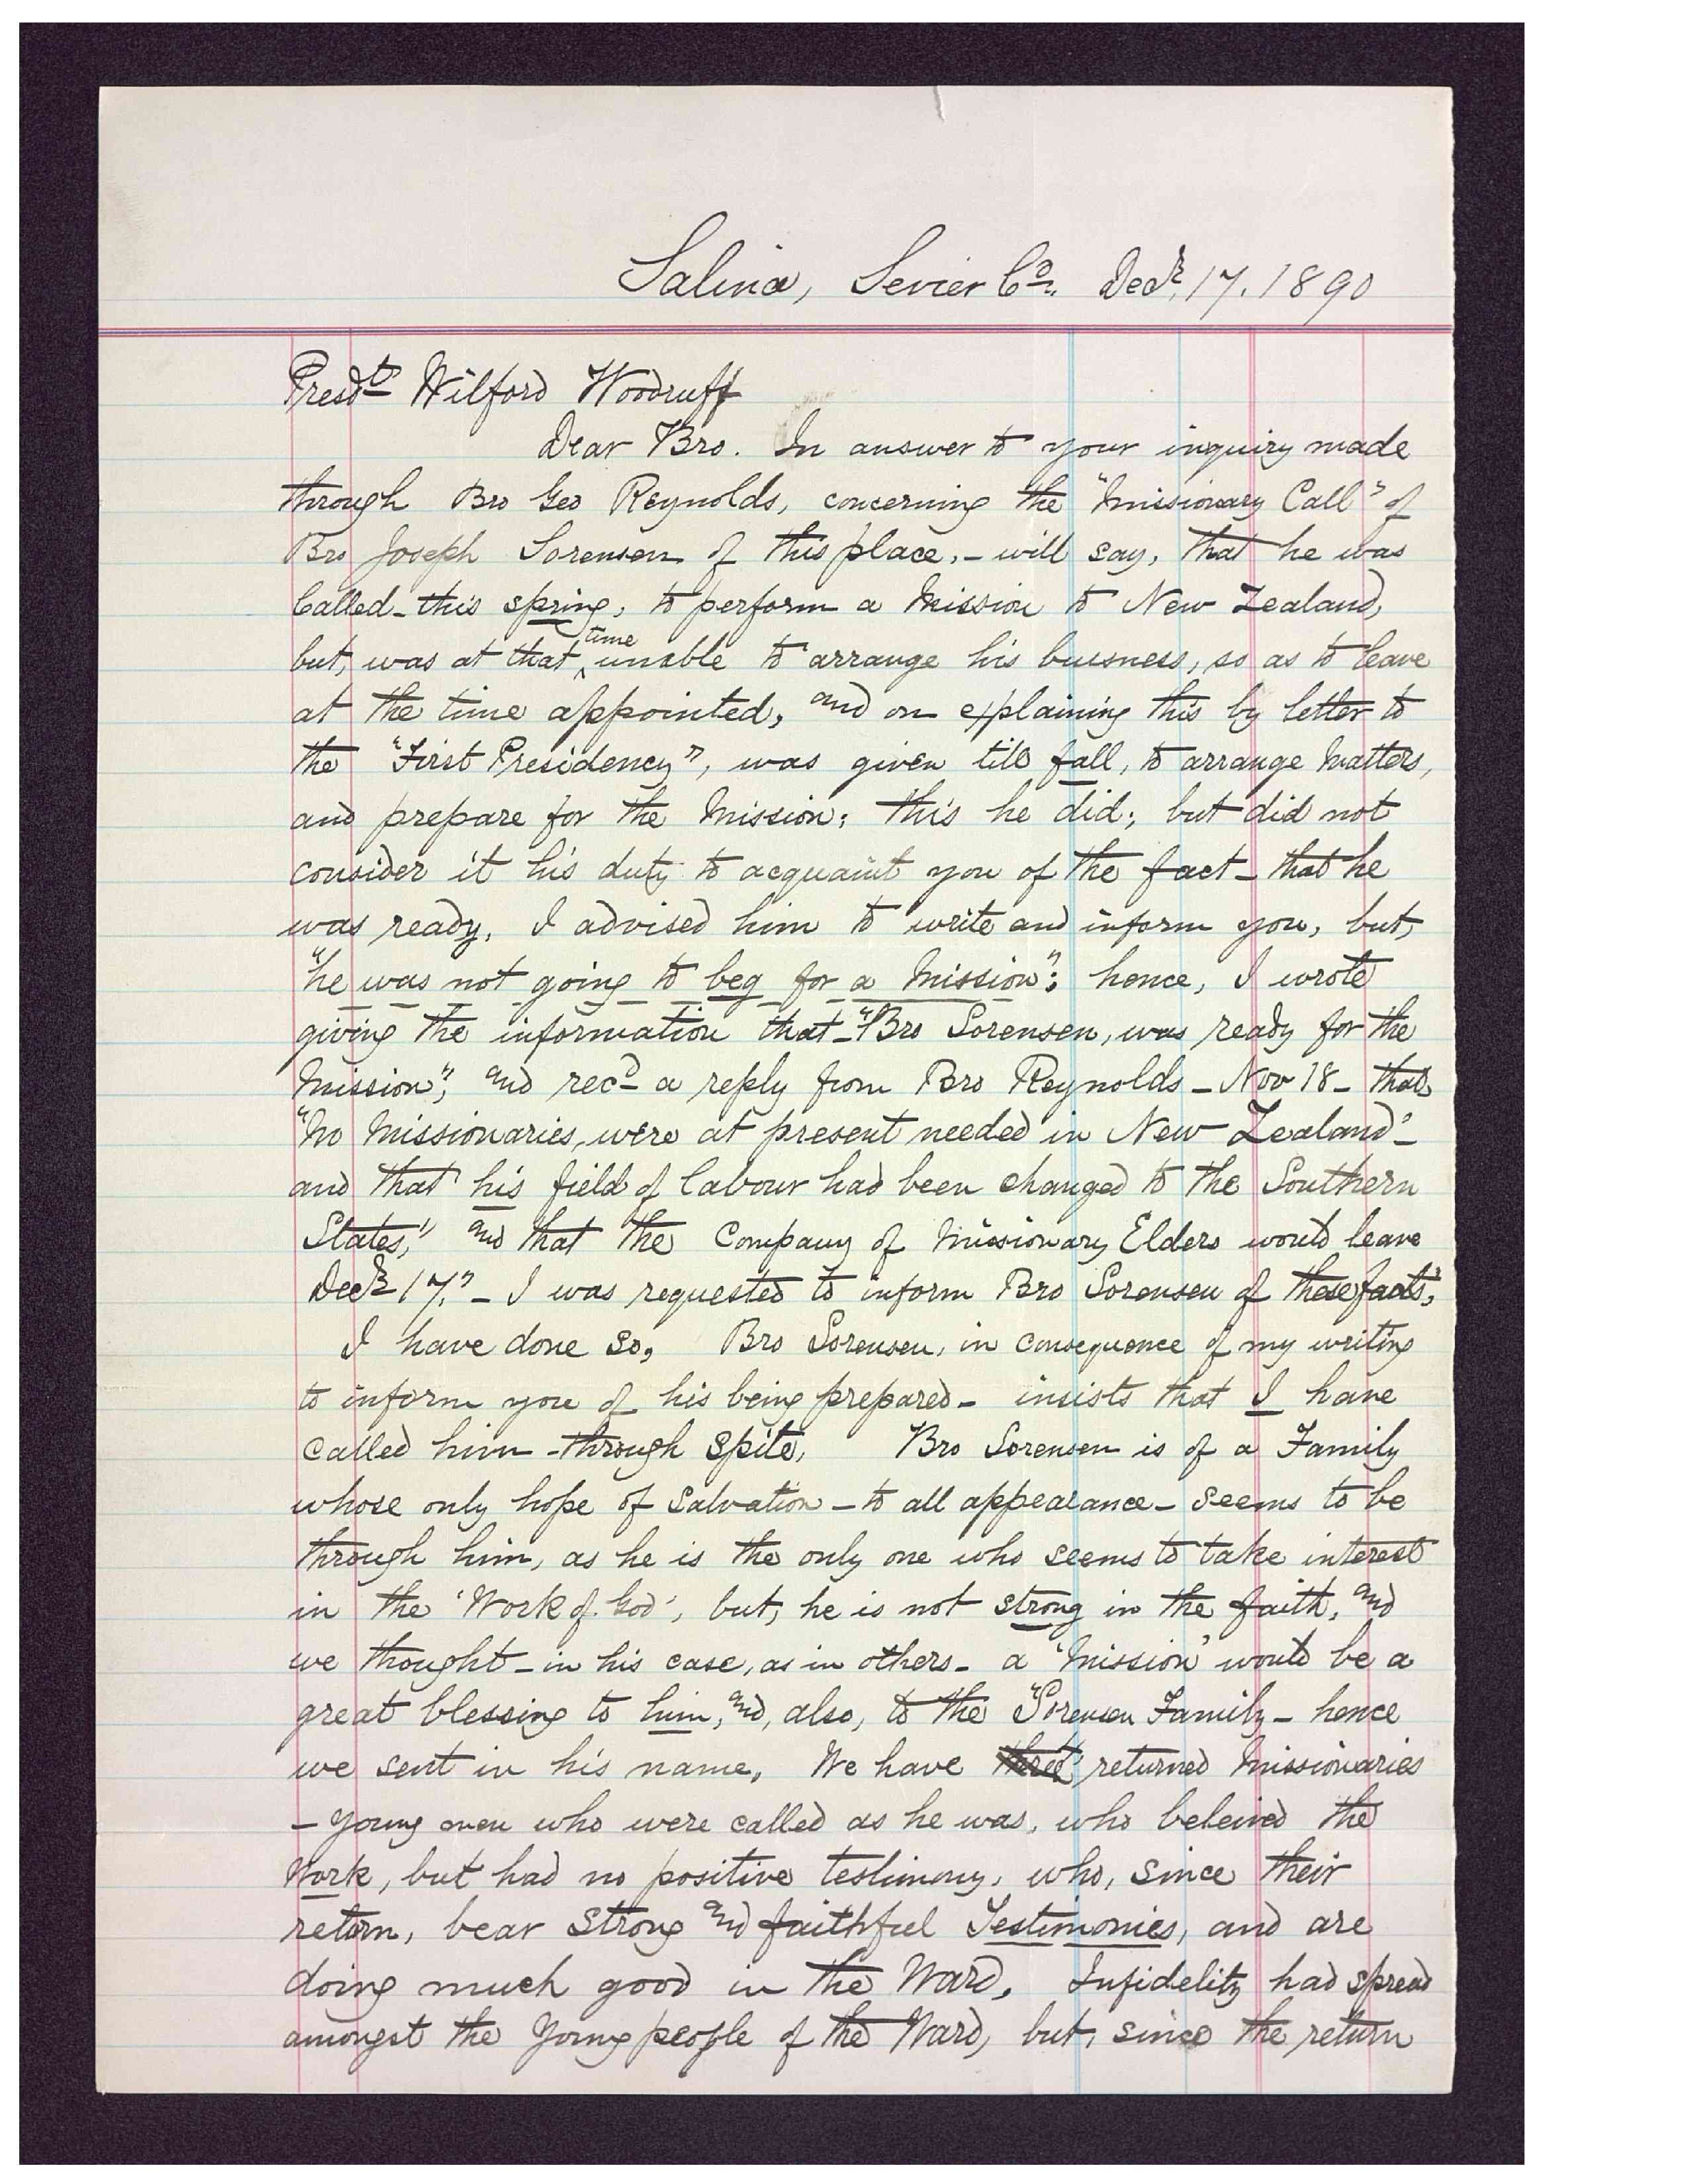 Salina, Sevier Co. Decr. 17. 1890
Presdt Wilford Woodruff
Dear Bro. In answer to your inquiry made
through Bro Geo Reynolds, concerning the "Missionary Call" of
Bro Joseph Sorensen of this place, - will say, that he was
Called - this spring, to perform a Mission to New Zealand,
but, was at that time unable to arrange his buisness, so as to leave
at the time appointed, and on explaining this by letter to
the "First Presidency", was given till fall, to arrange Matters,
and prepare for the Mission; this he did; but did not
consider it his duty to acquaint you of the fact - that he
was ready. I advised him to write and inform you, but,
"he was not going to beg for a Mission"; hence, I wrote
giving the information that - "Bro Sorensen, was ready for the
Mission", and recd a reply from Bro Reynolds - Nov 18 - that
"No Missionaries, were at present needed in New Zealand" -
and that his field of labour had been changed to the Southern
States," and that the Company of Missionary Elders would leave
Decr 17." - I was requested to inform Bro Sorensen of these facts,"
I have done so, Bro Sorensen, in consequence of my writing
to inform you of his being prepared - insists that I have
called him - through spite, Bro Sorensen is of a Family
whose only hope of Salvation - to all appearance - seems to be
through him, as he is the only one who seems to take interest
in the 'Work of God', but, he is not strong in the faith, and
we thought - in his case, as in others - a 'Mission' would be a
great blessing to him, and, also, to the Sorensen Family - hence
we sent in his name, We have three returned Missionaries
- young men who were called as he was, who beleived the
Work, but had no positive testimony, who, since their
return, bear strong and faithful Testimonies, and are
doing much good in the Ward, Infidelity had spread
amongst the Young people of the Ward, but, since the return